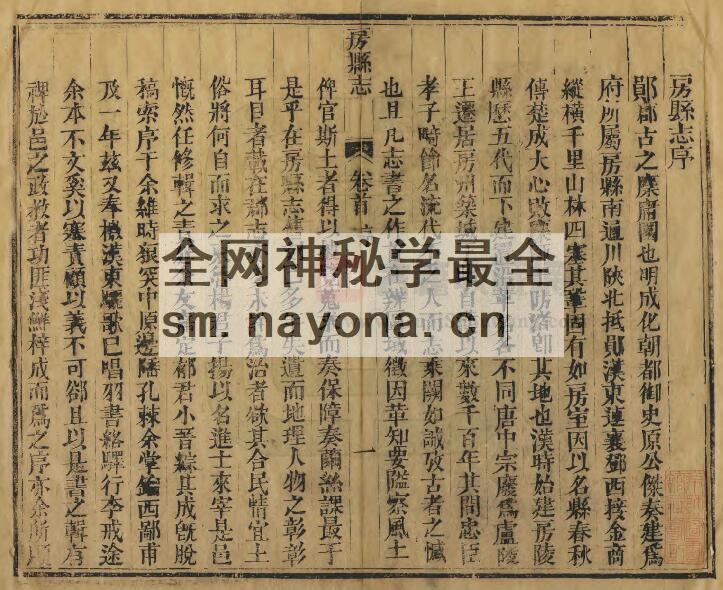 房縣志序
鄖郡古之麋庸國也明成化朝都御史原公傑奏建爲
府所屬房縣南通川陝北抵鄖漢東連襄鄧西接金商
縱橫千里山林四塞其鞏固有如房室因以名縣春秋
傳楚成大心敗麋防渚卽其地也漢時始建房陵
縣歷五代而下名不同唐中宗廢爲盧陵
王遷居房州築城自以來數千百年其間忠臣
孝子時節名流代人而志乘闕如誠攷古者之憾
也且凡志書之作辨域徵因革知要隘察風土
房縣志
卷首
一
俾官斯土者得以而奏保障奏繭絲課最于
是乎在房縣志舊已多失遺而地理人物之彰彰
耳目者載在郡志爲治者欲其合民情宜土
俗將何自而求之楊君子揚以名進士來宰是邑
慨然任修輯之責友定郡君小晉綜其成旣脫
稿索序于余維時狼突中原邊陲孔棘余堂西鄙甫
及一年玆又奉檄漢東驪歌已唱羽書絡驛行李戒途
余本不文奚以塞責顧以義不可卻且以是書之輯有
裨於邑之政教者功匪淺鮮梓成而爲之序亦余所
全网神秘学最全
sm.nayona.cn